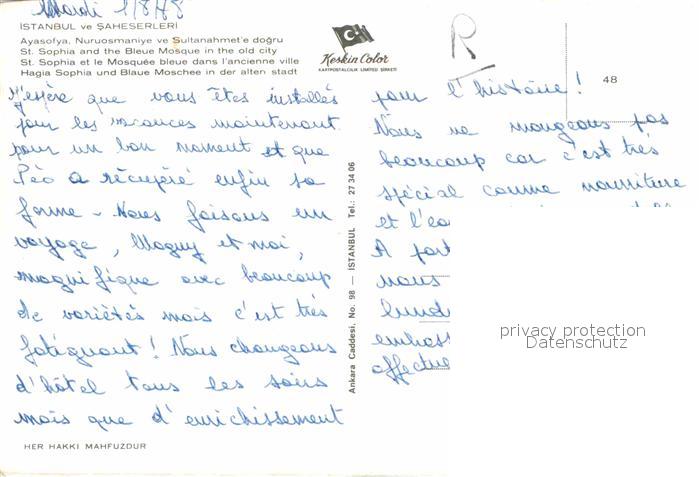 Mardi 1/8/78
İSTANBUL ve ŞAHESERLERİ
Ayasofya, Nuruosmaniye ve Sultanahmet'e doğru
St. Sophia and the Bleue Mosque in the old city
St. Sophia et le Mosquée bleue dans l'ancienne ville
Hagia Sophia und Blaue Moschee in der alten stadt
Keskin Color
KARTPOSTALCILIK LIMITED ŞIRKETI
R
48
J'espère que vous êtes installés
pour les vacances maintenant
pour un bon moment et que
Péo a récupéré enfin sa
forme - Nous faisons un
voyage, Maguy et moi,
magnifique avec beaucoup
de variétés mais c'est très
fatiguant! Nous changeons
d'hôtel tous les soirs
mais que d'enrichissement
HER HAKKI MAHFUZDUR
Ankara Caddesi, No. 98 — İSTANBUL Tel.: 27 34 06
pour l'histoire!
Nous ne mangeons pas
beaucoup car c'est très
spécial comme nourriture
et l'ea
A part
nous
lund
embass
effectue
privacy protection
Datenschutz